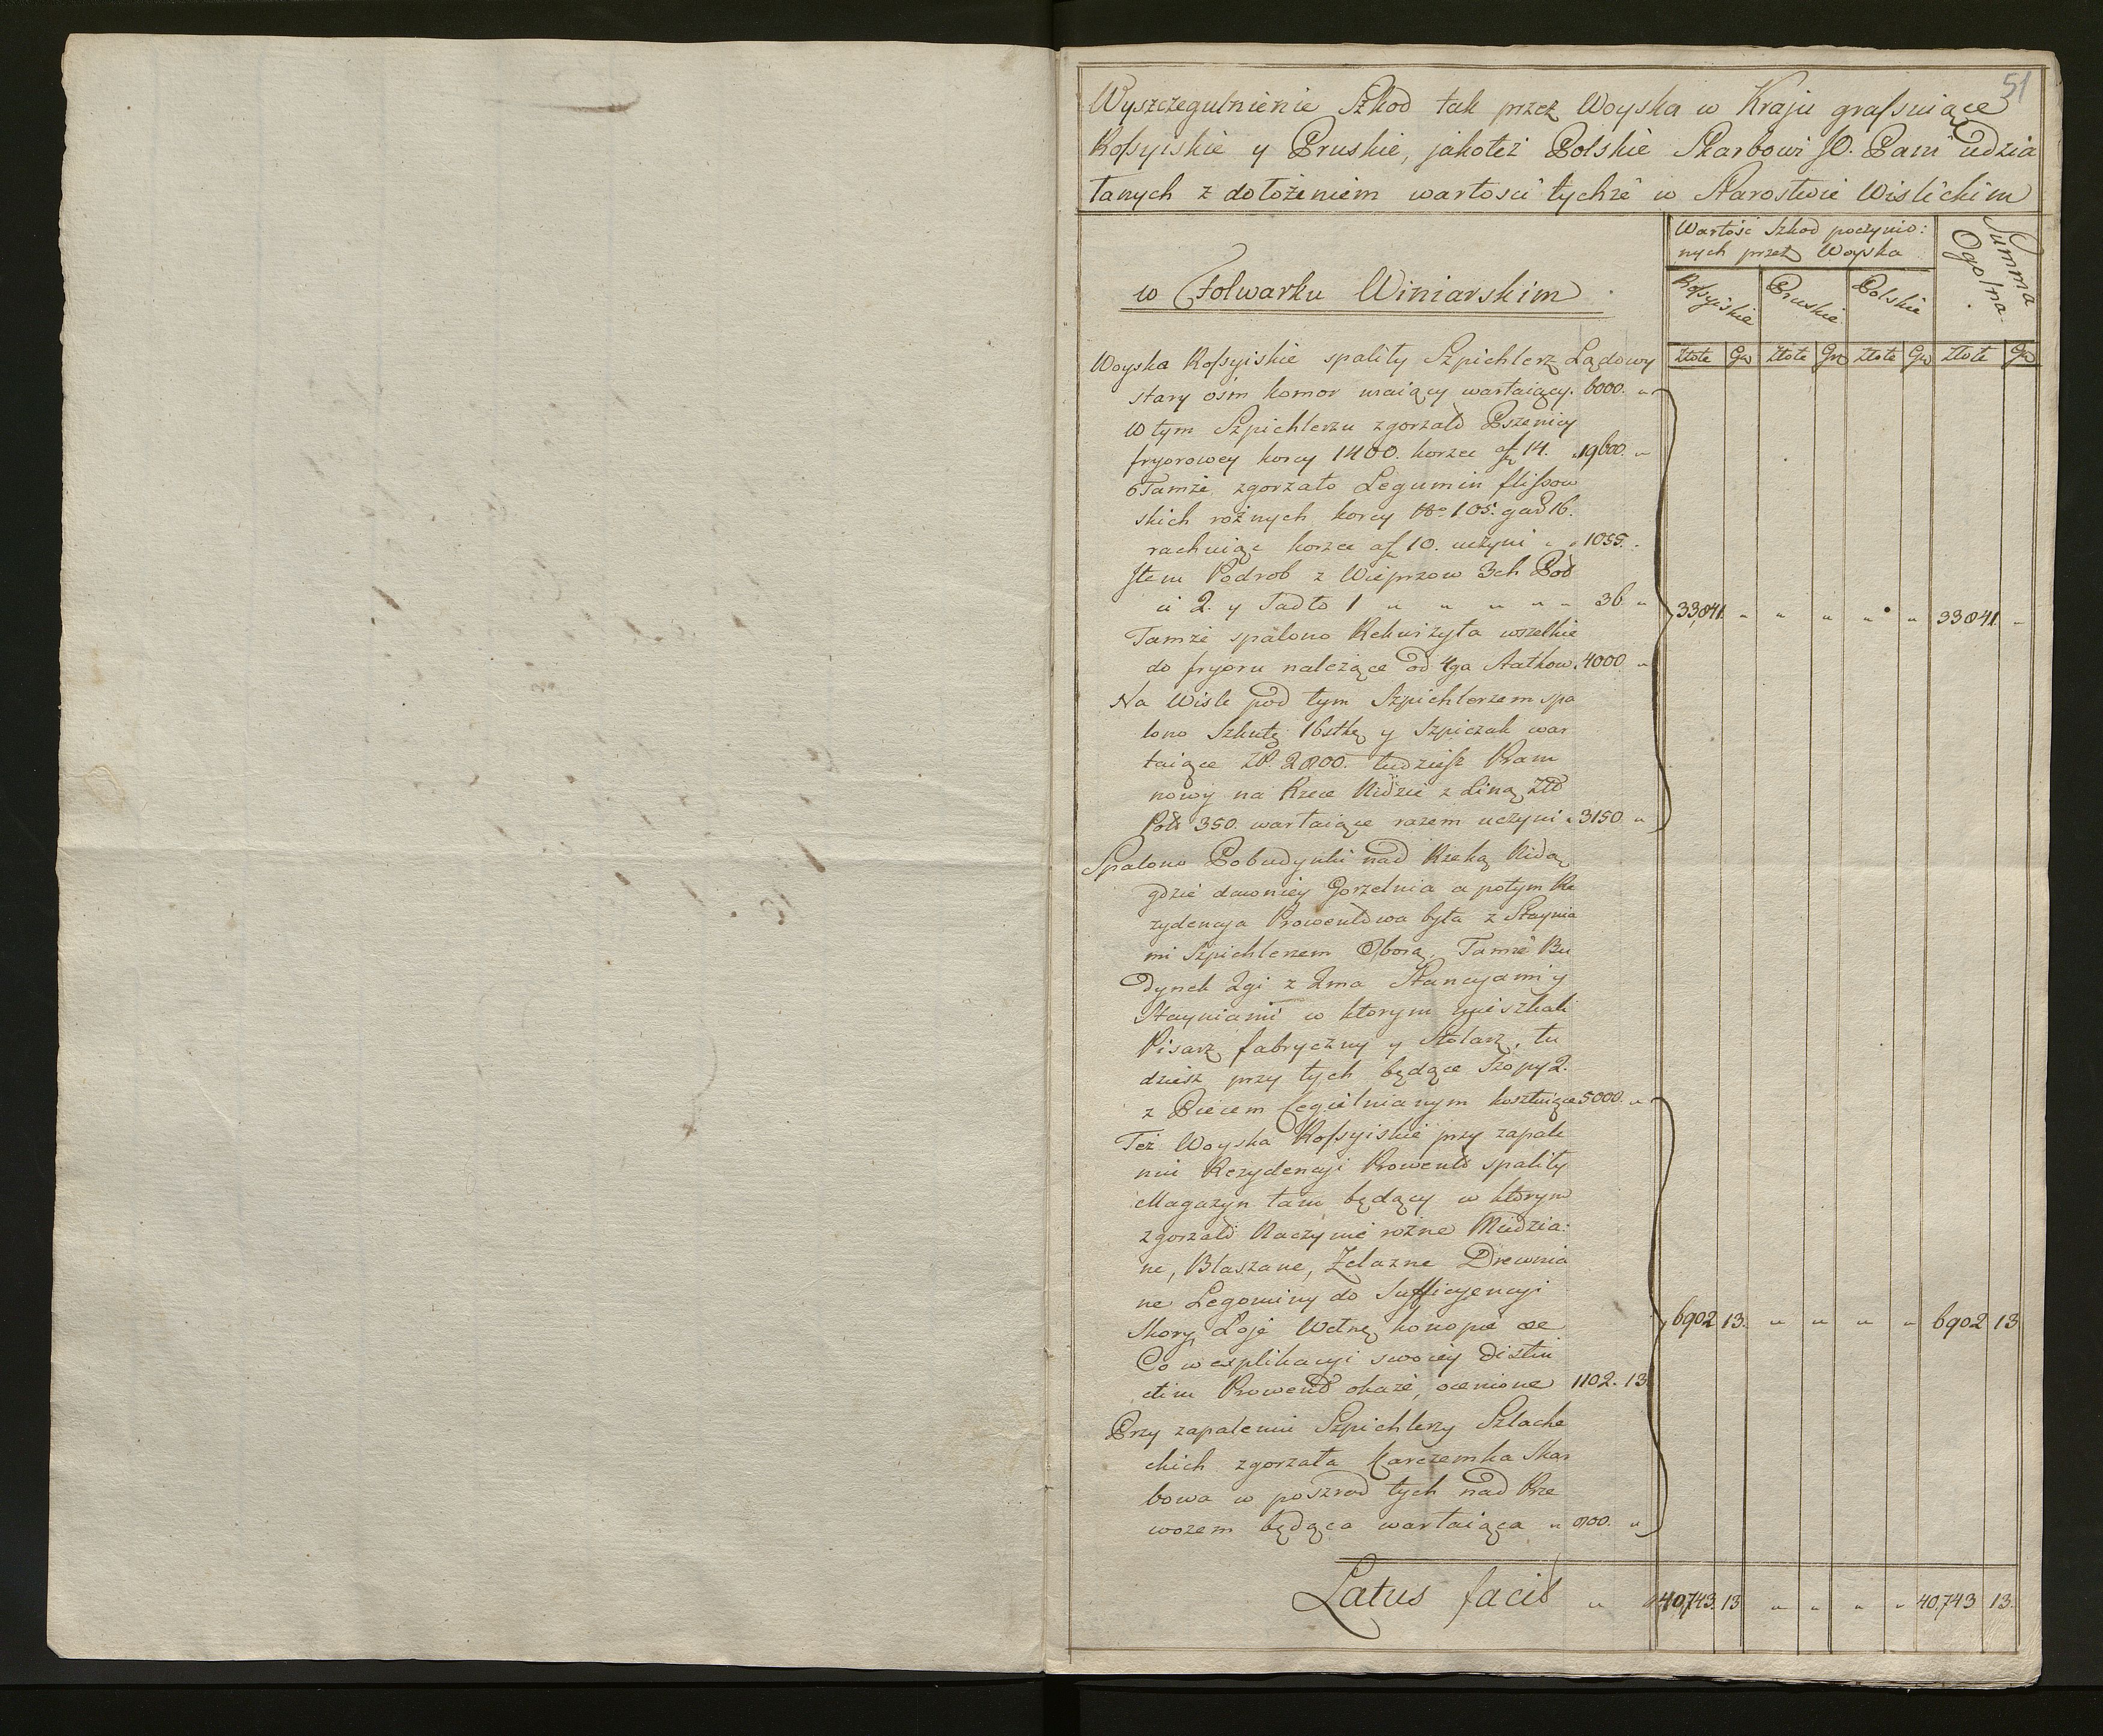 51
Wyszczegulnienie Szkod tak przez Woyska w Kraju grassuiące
Rossyiskie y Pruskie, jakoteż Polskie Skarbowi JO. Pani udzia
łanych z dołożeniem wartości tychże w Starostwie Wislickim
Wartość Szkod poczynio:
nych przez Woyska
Summa
Ogolna
w Folwarku Winiarskim
Rossyiskie Pruskie Polskie
Złote Gr Złote Gr Złote Gr Złote Gr
Woyska Rossyiskie spality Szpichlerz Lądowy
stary ośm komor maiący wartaiący. 6000. "
W tym Szpichlerzu zgorzało Pszenicy
fryorowey korcy 1400. korzec af 14. 19600. "
Tamże zgorzało Legumin flissow
skich rożnych korcy 105. gar 16.
rachuiąc korzec af 10. uczyni " 1055. "
Item Podrob z Wieprzow 3ch Poł
ci 2. y Sadło 1 " " " " " 36 "
33,841 " " " " " 33841 "
Tamże spalono Rekwizyta wszelkie
do fryoru należące od 4ga Statkow. 4000. "
Na Wisle pod tym Szpichlerzem spa
lono Szkutę 16stkę y Szpiczak war
taiące ZP. 2800. tudziesz Pram
nowy na Rzece Nidzie z Liną Złł
Pols 350. wartaiące razem uczyni " 3150 "
Spalono Pobudynki nad Rzeką Nidą
gdzie dawniey Gorzelnia a potym Re
zydencya Prowentowa była z Staynia
mi Szpichlerzem Oborą. Tamże Bu
dynek 2gi z 2ma Stancyami y
Stayniami w ktorym mieszkali
Pisarz fabryczny y Stolarz, tu
dziesz przy tych będące Szopy 2.
z Piecem Cegielnianym kosztuiące 5000. "
Też Woyska Rossyiskie przy zapale
niu Rezydencyi Prowent spality
Magazyn tam będący w ktorym
zgorzało Naczynie rożne Miedzia:
ne, Blaszane, Żelazne Drewnia
ne Legominy do Sufficyencyi
Skory Łoje Wełnę konopie etc
6902 13. " " " " 6902 13
Co w explikacyi swoiey distin
ctim Prowent okaże, ocenione 1102. 13
Przy zapaleniu Szpichlerzy Szlache
ckich zgorzała Karczemka Skar
bowa w poszrod tych nad Prze
wozem będąca wartaiąca " 800. "
Latus facit " 40,743. 13 " " " " 40,743 13.